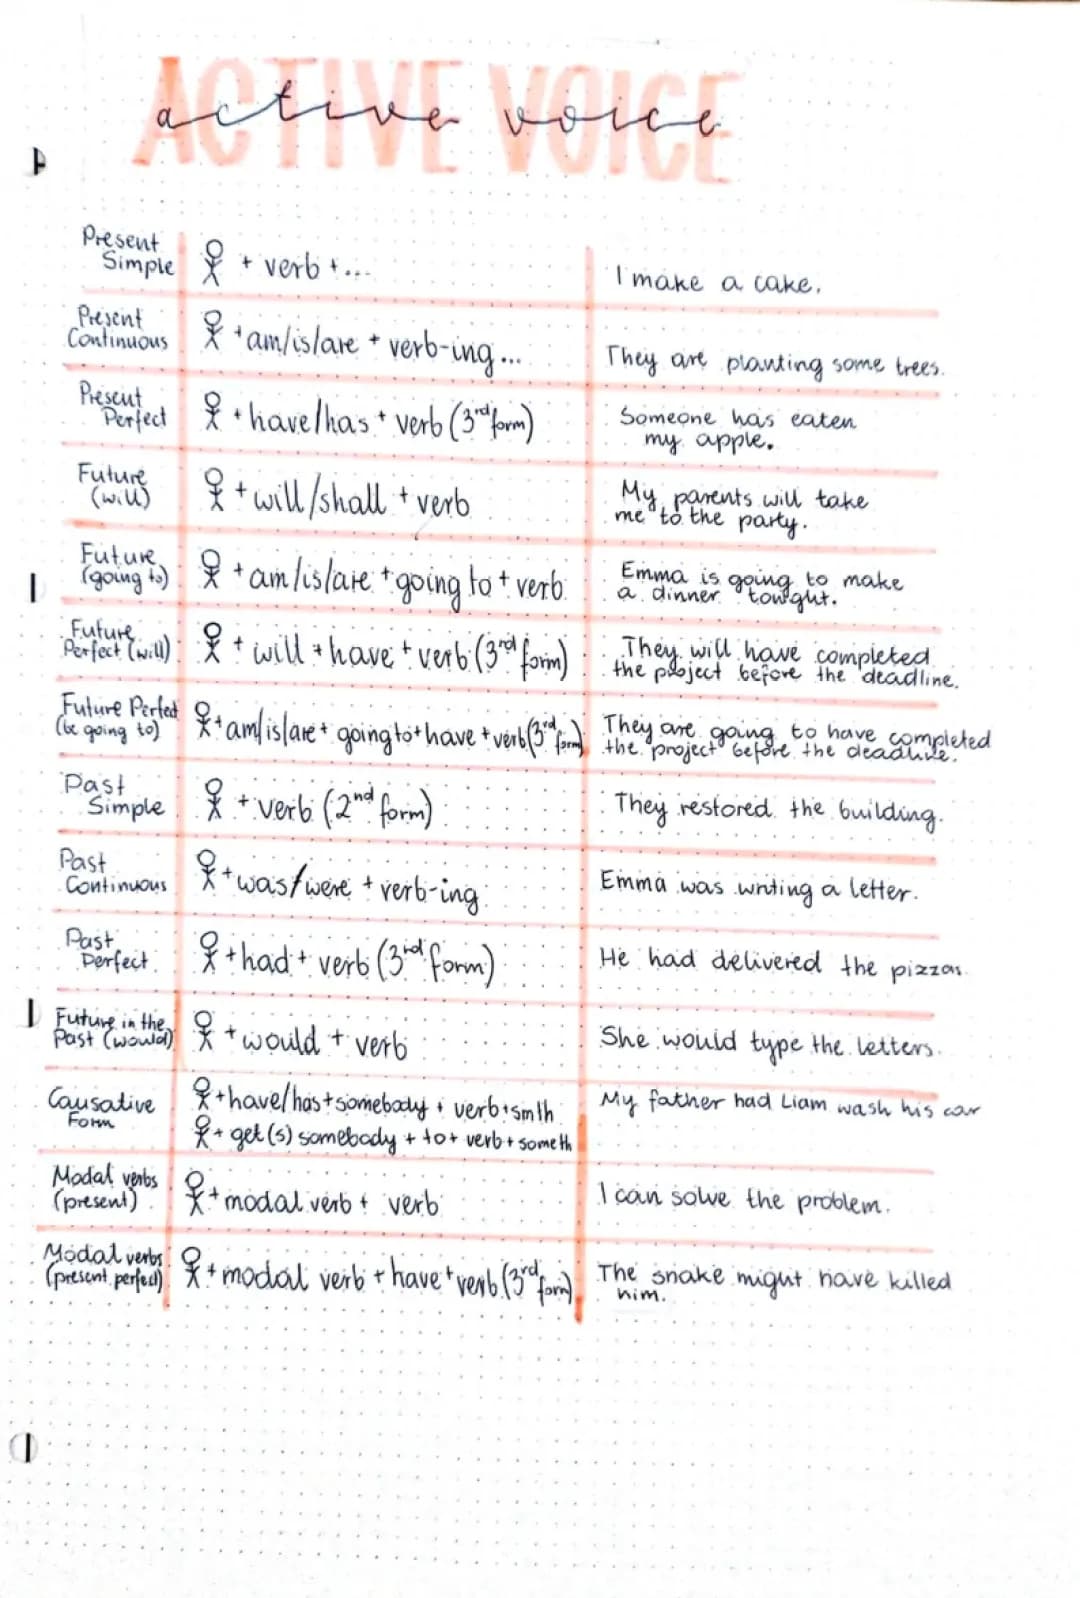 ACTIVE VOICE
active voice
Present
Simple
+ verb + ...
I make a cake.
Present
Continuous
+ am/is/are + verb-ing...
They are planting some trees.
Present
Perfect
+ have/has + verb (3rd form)
Someone has eaten
my apple.
Future
(will)
+ will/shall + verb
My parents will take
me to the party.
Future
(going to)
+ am/is/are + going to + verb
Emma is going to make
a dinner tonight.
Future
Perfect (will)
+ will + have + verb (3rd form)
They will have completed
the project before the deadline.
Future Perfect
(be going to)
+ am/is/are + going to + have + verb (3rd form)
They are going to have completed
the project before the deadline.
Past
Simple
+ verb (2nd form)
They restored the building.
Past
Continuous
+ was/were + verb-ing
Emma was writing a letter.
Past
Perfect
+ had + verb (3rd form)
He had delivered the pizzas.
Future in the
Past (would)
+ would + verb
She would type the letters.
Causative
Form
+ have/has + somebody + verb + smth
+ get(s) somebody + to + verb + someth
My father had Liam wash his car
Modal verbs
(present)
+ modal verb + verb
I can solve the problem.
Modal verbs
(present perfect)
+ modal verb + have + verb (3rd form)
The snake might have killed
him.